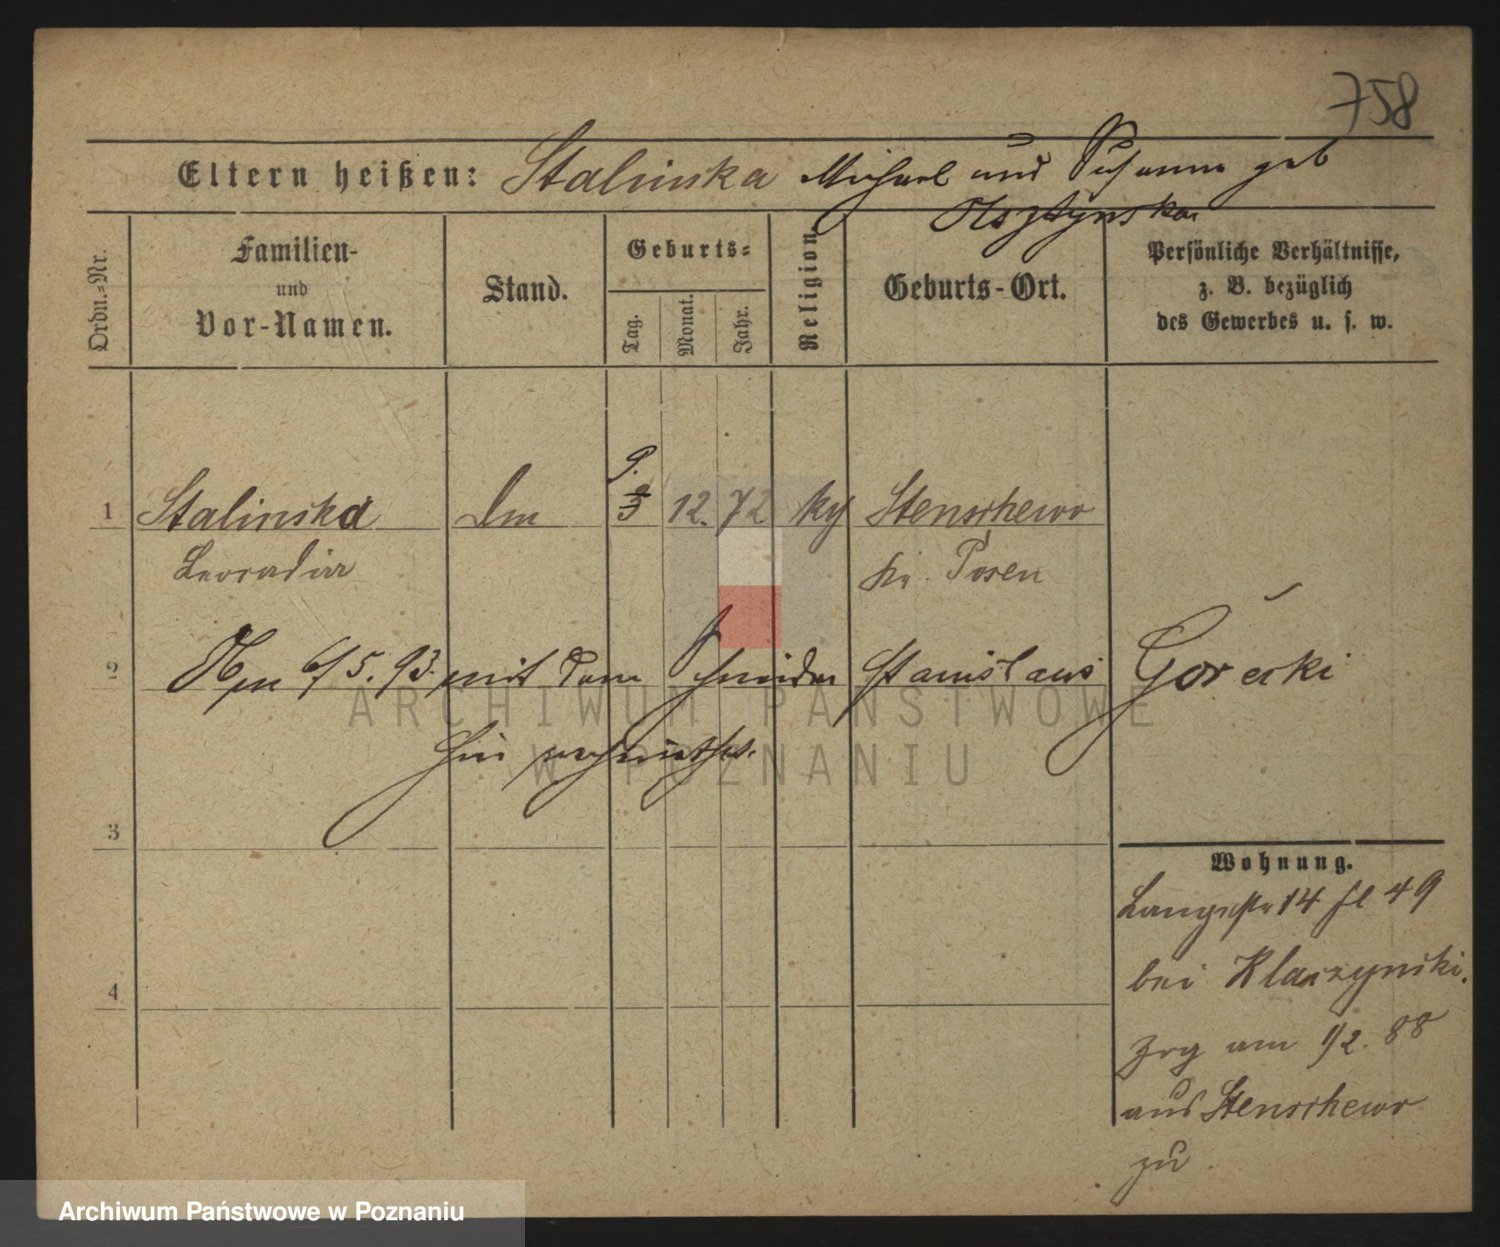 758
Eltern heißen: Stalinska Michael und Susanna geb
Olsztynska
Ordn.-Nr.
Familien-
und
Vor-Namen.
Stand.
Geburts-
Tag.
Monat.
Jahr.
Religion
Geburts-Ort.
Persönliche Verhältnisse,
z. B. bezüglich
des Gewerbes u. s. w.
1 Stalinska 9. 12. 72 Stenschewo
Leocadia Kr. Posen
2 6/5. 93. mit dem Schneider Stanislaus Górecki
hier
3
4
Wohnung.
Langestr 14 49
bei Klaczynski.
Zog am 1/2. 88
aus Stenschewo
zu
ARCHIWUM PAŃSTWOWE
W POZNANIU
Archiwum Państwowe w Poznaniu